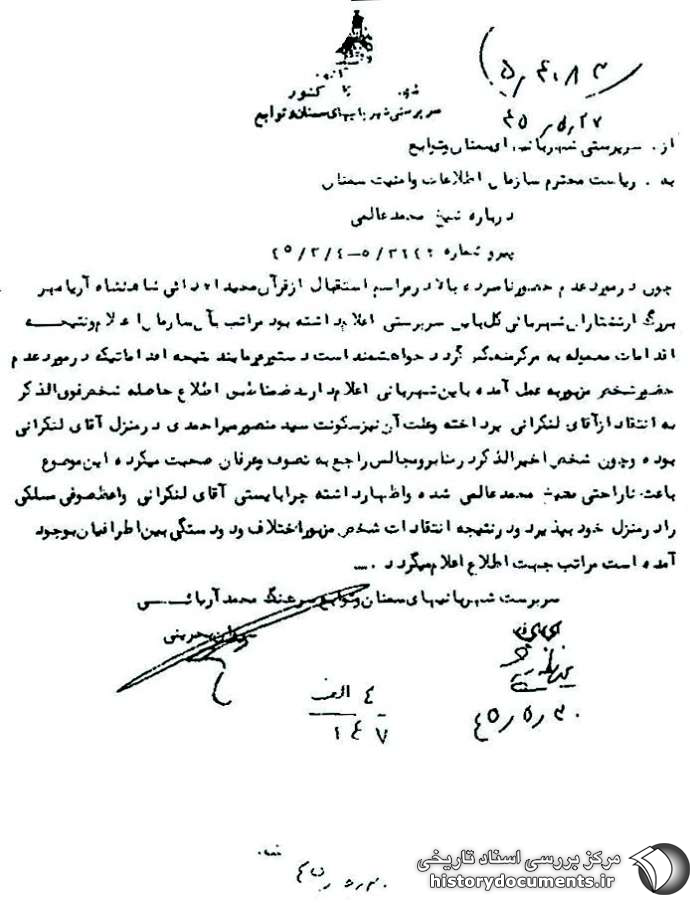 ۵٫۴۰۸۳
۴۵٫۵٫۲۷
کشور
سرپرستی شهربانیهای سمنان و توابع
از . سرپرستی شهربانیهای سمنان و توابع
به . ریاست محترم سازمان اطلاعات و امنیت سمنان
درباره شیخ محمد عالمی
پیرو شماره
چون در مورد عدم حضور نامبرده بالا در مراسم استقبال از قرآن محمد اهدائی شاهنشاه آریامهر
بزرگ ارتشتاران شهربانی کل باین سرپرستی اعلام داشته بود مراتب بآن سازمان اعلام و نتیجه
اقدامات معموله به مرکز منعکس گردد خواهشمند است دستور فرمایند نتیجه اقداماتیکه در مورد عدم
حضور شخص مزبور به عمل آمده باین شهربانی اعلام دارند ضمنا طبق اطلاع حاصله شخص فوق الذکر
به انتقاد از آقای لنکرانی پرداخته و علت آن نیز سکونت سید منصور میراحمدی در منزل آقای لنکرانی
بوده و چون شخص اخیرالذکر در منابر و مجالس راجع به تصوف و عرفان صحبت میکرده این موضوع
باعث ناراحتی شیخ محمد عالمی شده و اظهار داشته چرا بایستی آقای لنکرانی واعظ صوفی مسلکی
را در منزل خود بپذیرد و در نتیجه انتقادات شخص مزبور اختلاف و دو دستگی بین اطرافیان بوجود
آمده است مراتب جهت اطلاع اعلام میگردد .....
سرپرست شهربانیهای سمنان و توابع سرهنگ محمد آریائی
۴ الف
۱۴۷
۴۵٫۵٫۳۰
مرکز بررسی اسناد تاریخی
historydocuments.ir